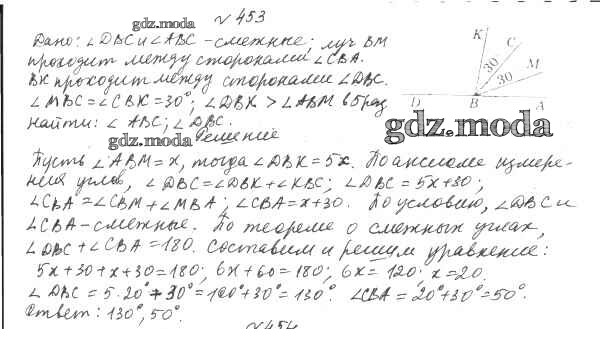 № 453
gdz.moda
Дано: ∠DBC и ∠ABC - смежные; луч BM
проходит между сторонами ∠CBA.
BK проходит между сторонами ∠DBC.
∠MBC = ∠CBK = 30°; ∠DBK > ∠ABM в 5 раз
Найти: ∠ABC; ∠DBC.
K
C
M
30
30
D
B
A
gdz.moda
Решение
gdz.moda
Пусть ∠ABM = x, тогда ∠DBK = 5x. По аксиоме измере-
ния углов, ∠DBC = ∠DBK + ∠KBC; ∠DBC = 5x + 30;
∠CBA = ∠CBM + ∠MBA; ∠CBA = x + 30. По условию, ∠DBC и
∠CBA - смежные. По теореме о смежных углах,
∠DBC + ∠CBA = 180. Составим и решим уравнение:
5x + 30 + x + 30 = 180; 6x + 60 = 180; 6x = 120; x = 20.
∠DBC = 5·20° + 30° = 100° + 30° = 130°. ∠CBA = 20° + 30° = 50°.
Ответ: 130°, 50°.
№ 454